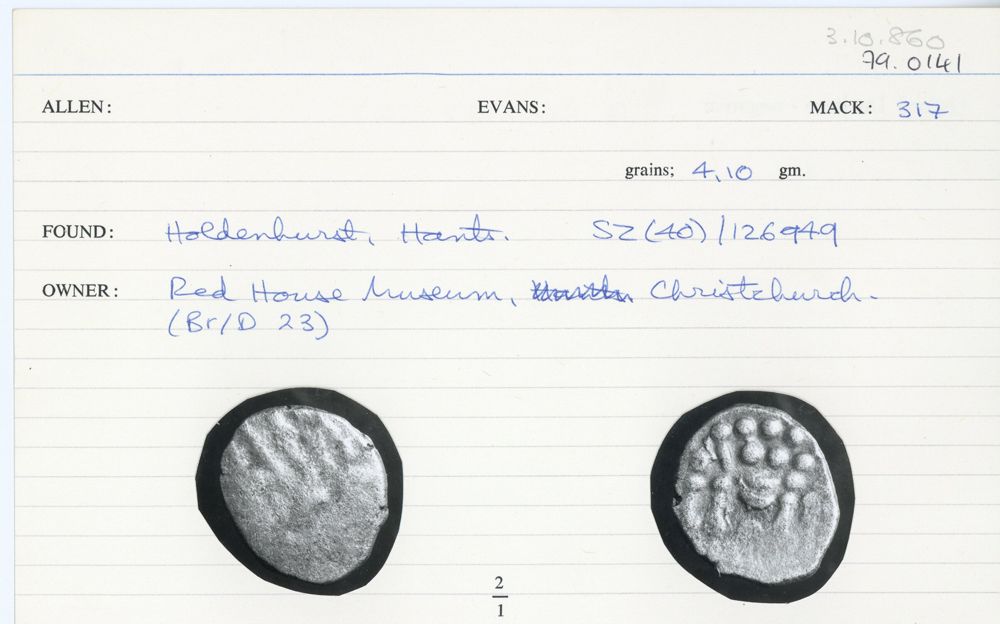 3.10.860
79.0141
ALLEN: EVANS: MACK: 317
grains; 4.10 gm.
FOUND: Holdenhurst, Hants. SZ(40)/126949
OWNER: Red House Museum, Christchurch.
(Br/D 23)
2
1